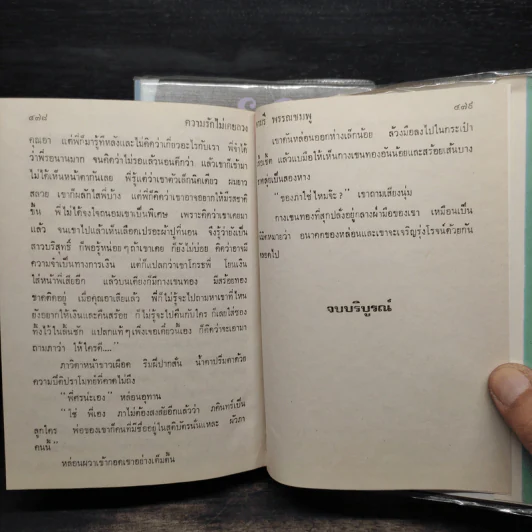 ๔๗๘
ความรักไม่เคยถวง
คุณอา แต่พี่ก็มารู้ทีหลังและไม่คิดว่าเกี่ยวอะไรกับเรา พี่จำได้
ว่าพี่รอนานมาก จนคิดว่าไม่รอแล้วนอนดีกว่า แล้วเขาก็เข้ามา
ไม่ได้เห็นหน้าตากันเลย พี่รู้แค่ว่าเขาตัวเล็กนิดเดียว ผมยาว
สลวย เขาก็ผลักไสพี่บ้าง แต่พี่ก็คิดว่าเขาอาจอยากให้มีรสชาติ
ขึ้น พี่ไม่ได้จงใจถนอมเขาเป็นพิเศษ เพราะคิดว่าเขาเคยมา
แล้ว จนเขาไปแล้วเห็นเลือดเปรอะผ้าปูที่นอน จึงรู้ว่ายังเป็น
สาวบริสุทธิ์ ก็พอรู้หน่อยๆ ถ้าเขาเคย ก็ยังไม่บ่อย คิดว่าอาจมี
ความจำเป็นทางการเงิน แต่ก็แปลกว่าเขาโกรธพี่ โยนเงิน
ใส่หน้าพี่เสียอีก แล้วบนเตียงก็มีกางเขนทอง มีสร้อยทอง
ขาดติดอยู่ เมื่อคุณอาเสียแล้ว พี่ก็ไม่รู้จะไปถามหาเขาที่ไหน
ยังอยากให้เงินและคืนสร้อย ก็ไม่รู้จะไปคืนกับใคร ก็เลยใส่ซอง
ทิ้งไว้ในลิ้นชัก แปลกแท้ๆ เพิ่งเจอเดี๋ยวนี้เอง ก็คิดว่าจะเอามา
ถามภาว่า ให้ใครดี....”
ภาวิดาหน้าขาวเผือด ริมฝีปากสั่น น้ำตาปริ่มตาด้วย
ความปีติปราโมทย์ที่คาดไม่ถึง
“พี่ศรน่ะเอง” หล่อนอุทาน
“ใช่ พี่เอง ภาไม่ต้องสงสัยอีกแล้วว่า ภคินทร์เป็น
ลูกใคร พ่อของเขาก็คนที่มีชื่ออยู่ในสูติบัตรนั่นแหละ ผัวภา
คนนี้”
หล่อนผวาเข้ากอดเขาอย่างเต็มตื้น
พรรณชมพู
๔๗๙
เขาดันหล่อนออกห่างเล็กน้อย ล้วงมือลงไปในกระเป๋า
แล้วแบมือให้เห็นกางเขนทองอันน้อยและสร้อยเส้นบาง
เป็นสองท่อน
“ของภาใช่ไหมจ๊ะ?” เขาถามเสียงนุ่ม
กางเขนทองที่สุกปลั่งอยู่กลางฝ่ามือของเขา เหมือนเป็น
หมายว่า อนาคตของหล่อนและเขาจะเจริญรุ่งโรจน์ด้วยกัน
ตลอดไป
จบบริบูรณ์